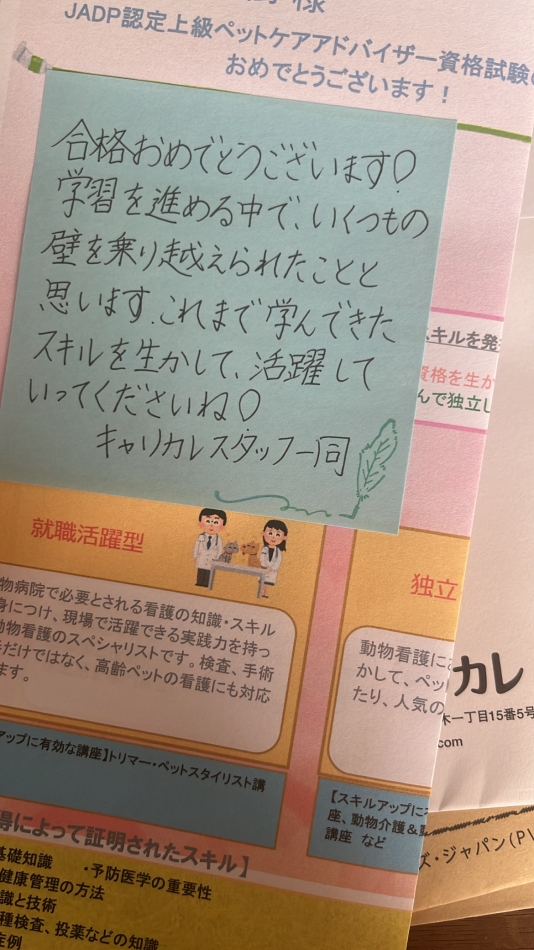 様
JADP認定上級ペットケアアドバイザー資格試験の
おめでとうございます！
合格おめでとうございます♡
学習を進める中で、いくつもの
壁を乗り越えられたことと
思います。これまで学んできた
スキルを生かして、活躍して
いってくださいね♡
キャリカレスタッフ一同
スキルを発
資格を生か
んで独立し
就職活躍型
物病院で必要とされる看護の知識・スキル
身につけ、現場で活躍できる実践力を持っ
動物看護のスペシャリストです。検査、手術
だけではなく、高齢ペットの看護にも対応
ます。
アップに有効な講座】トリマー・ペットスタイリスト講
独立
動物看護に
かして、ペッ
たり、人気の
【スキルアップに
座、動物介護&
講座 など
得によって証明されたスキル】
基礎知識 ・予防医学の重要性
健康管理の方法
識と技術
種検査、投薬などの知識
症例
カレ
木一丁目15番5号
com
ズ・ジャパン(P\